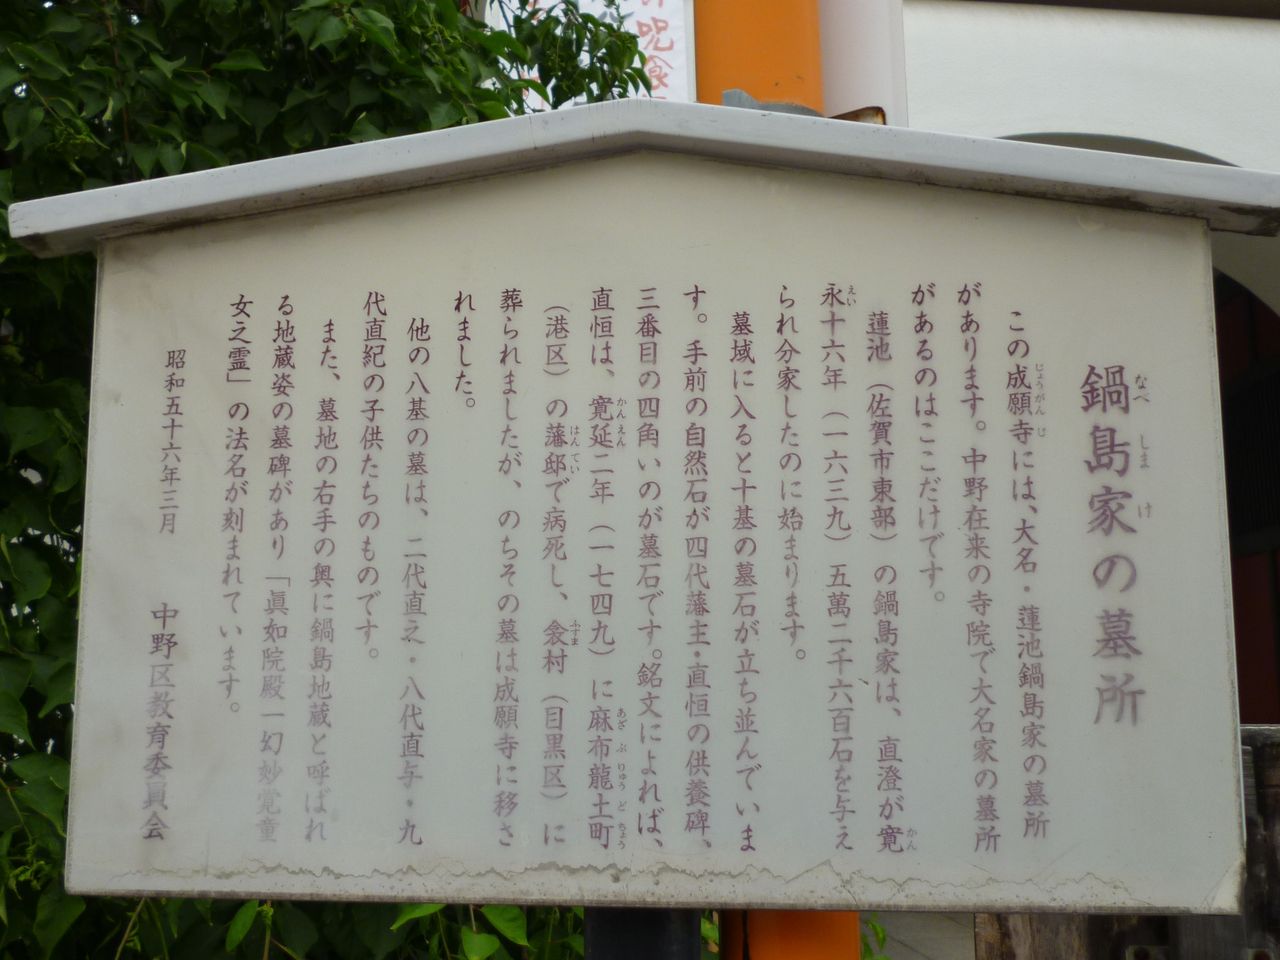 鍋島家の墓所
この成願寺には、大名・蓮池鍋島家の墓所
があります。中野在来の寺院で大名家の墓所
があるのはここだけです。
蓮池（佐賀市東部）の鍋島家は、直澄が寛
永十六年（一六三九）五萬二千六百石を与え
られ分家したのに始まります。
墓域に入ると十基の墓石が立ち並んでいま
す。手前の自然石が四代藩主・直恒の供養碑、
三番目の四角いのが墓石です。銘文によれば、
直恒は、寛延二年（一七四九）に麻布龍土町
（港区）の藩邸で病死し、衾村（目黒区）に
葬られましたが、のちその墓は成願寺に移さ
れました。
他の八基の墓は、二代直之・八代直与・九
代直紀の子供たちのものです。
また、墓地の右手の奥に鍋島地蔵と呼ばれ
る地蔵姿の墓碑があり「眞如院殿一幻妙覚童
女之霊」の法名が刻まれています。
昭和五十六年三月　中野区教育委員会